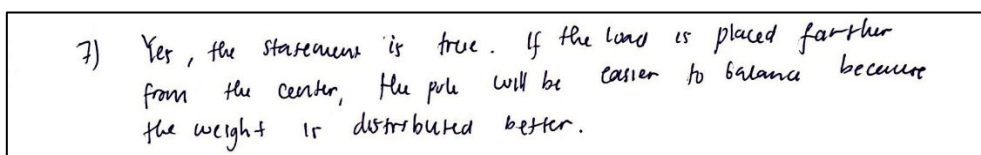 7) Yes, the statement is true. If the load is placed farther
from the center, the pole will be easier to balance because
the weight is distributed better.